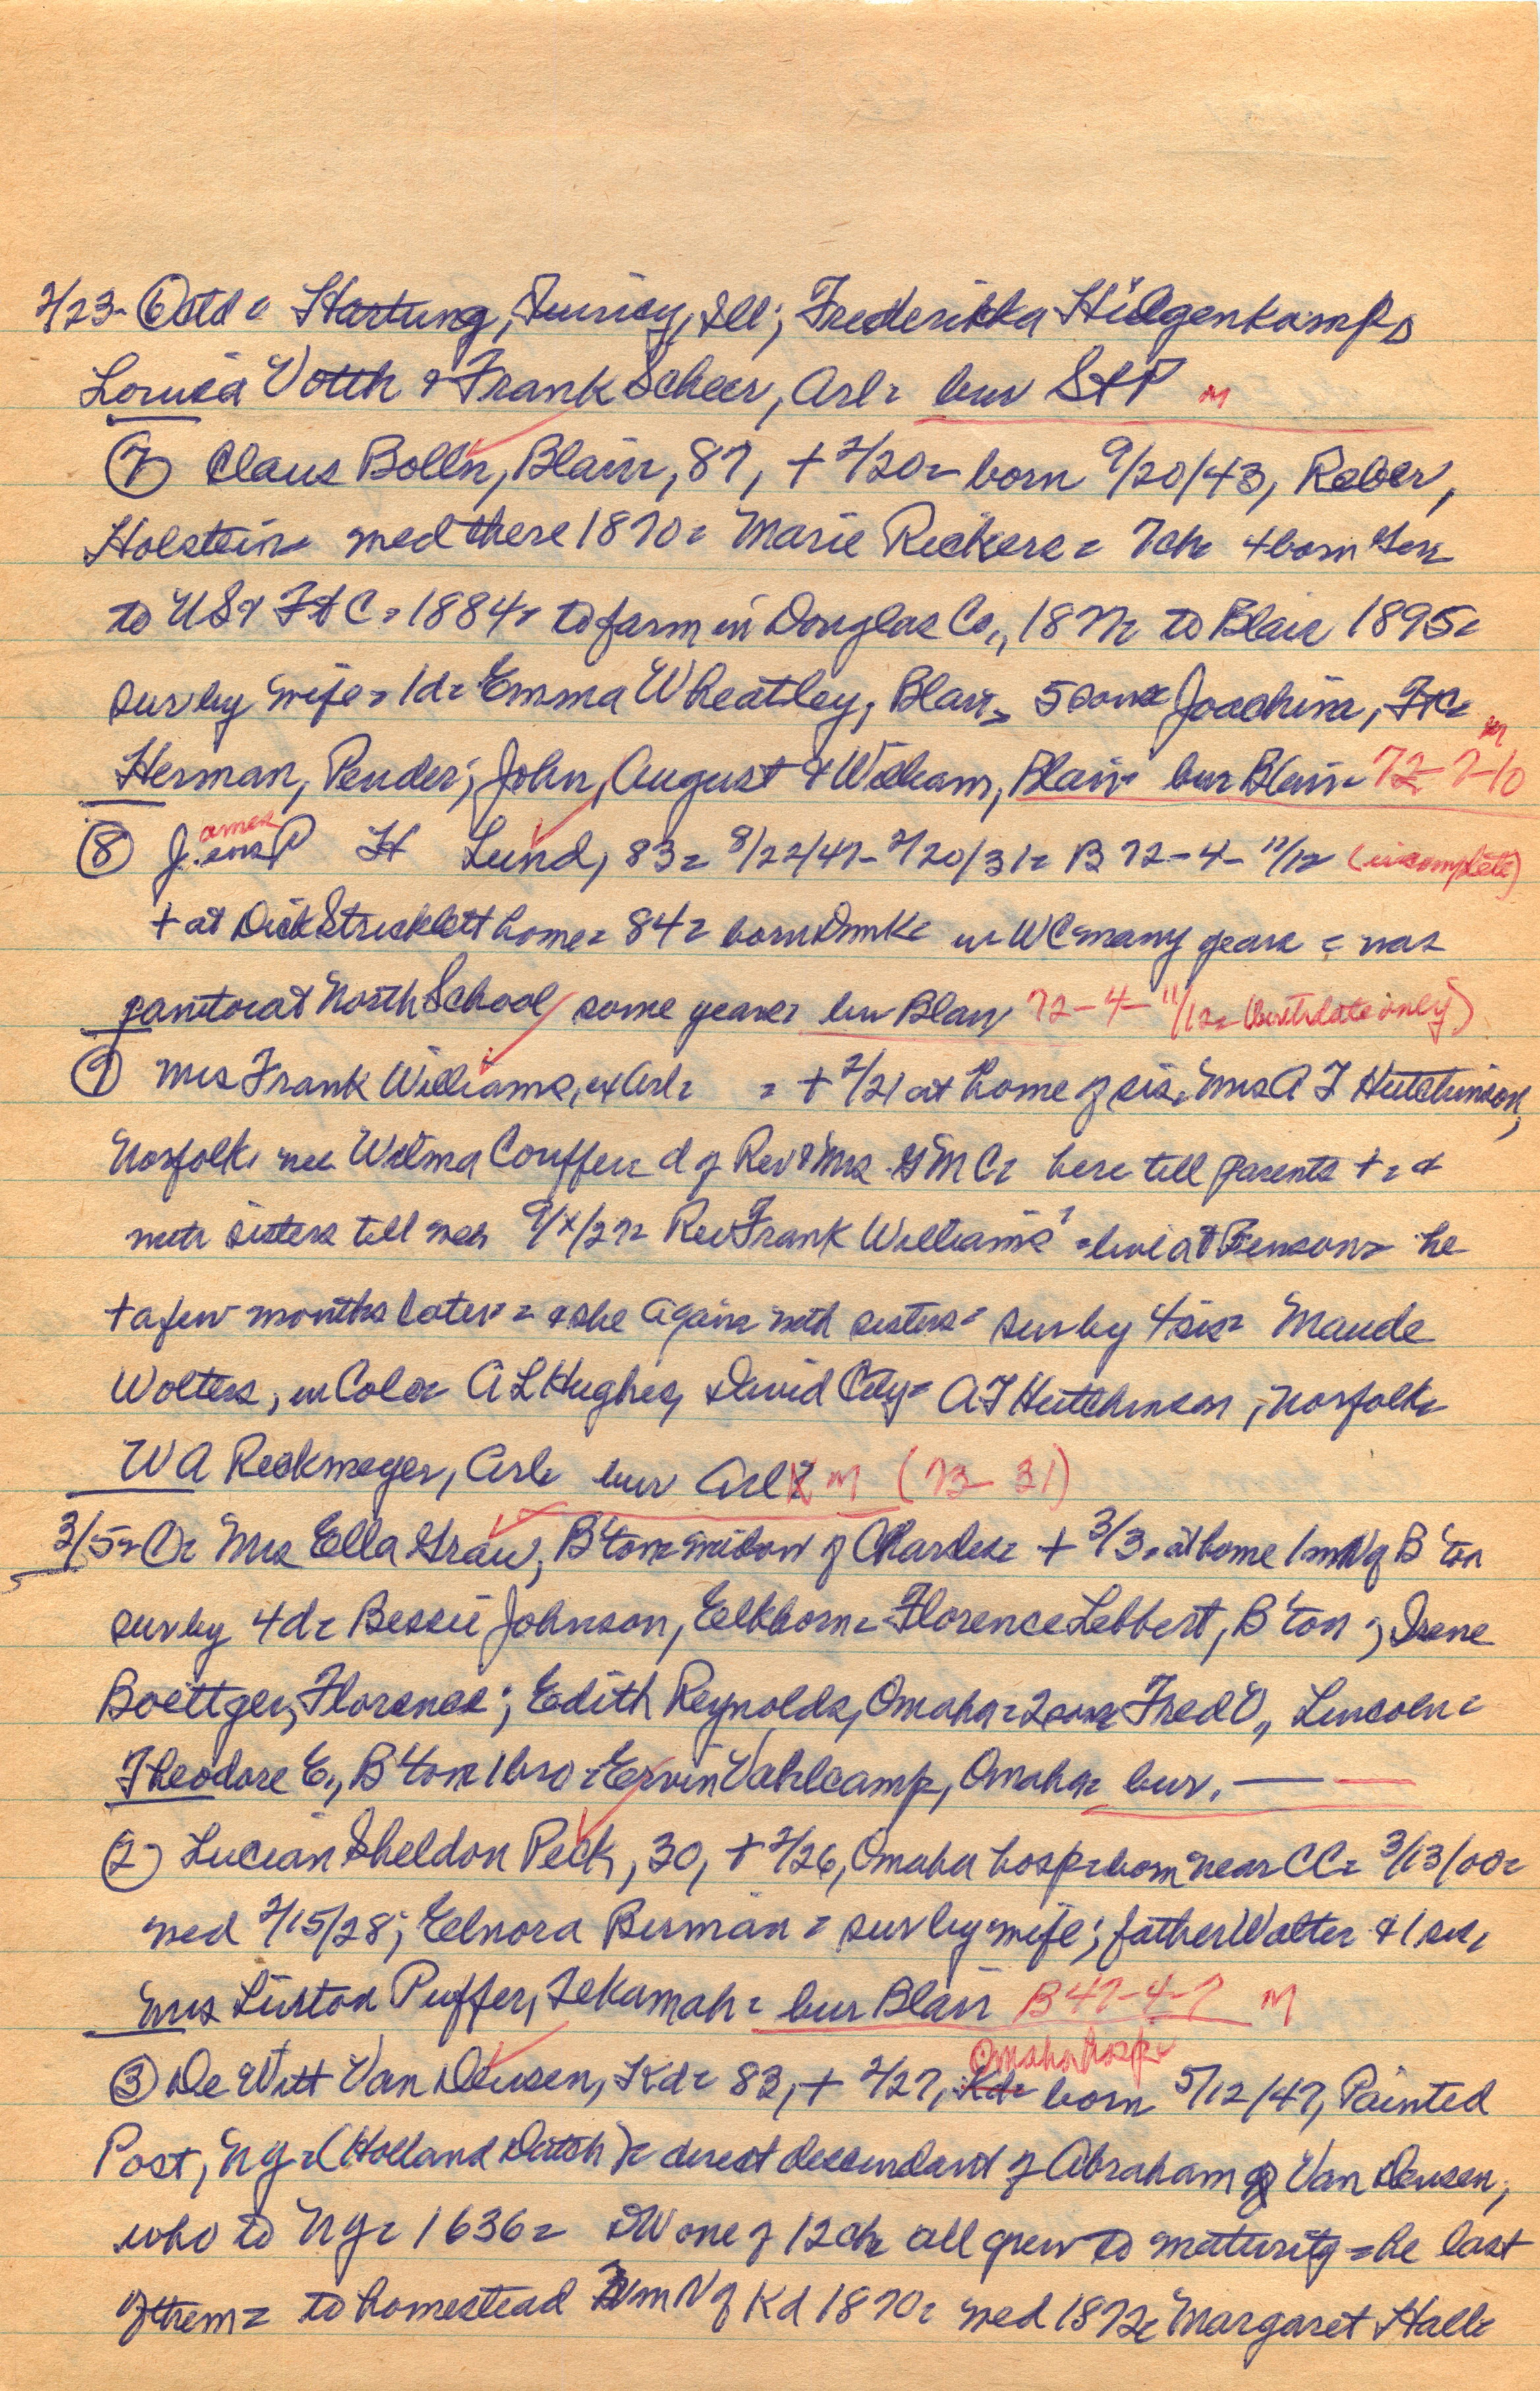 2/23- ⑥ Otld = Hartung, Quincy, Ill; Frederikka Hilgenkamp,
Louisa Votth & Frank Scheer, Arl= bur StP m
⑦ Claus Bolln, Blair, 87, + 2/20= born 9/20/43, Reber,
Holstein= med there 1870= Marie Reekers= 7ch= 4 born Ger=
to US & Ft C= 1884= to farm in Douglas Co., 18 to Blair 1895=
sur by wife= 1d= Emma Wheatley, Blair= 5 sons Joachim, FtC=
Herman, Pender; John, August & William, Blair= bur Blair= 72-7-10 m
⑧ Jens P H Lund, 83= 8/22/47- 2/20/31= B 72-4-11/12 (incomplete)
ames
+ at Dick Stricklett home= 84= born Dnmk= in WC many years = was
janitor at North School some years= bur Blair 72-4-11/12= (birthdate only)
⑨ Mrs Frank Williams, ex Arl= = + 2/21 at home of sis, Mrs A F Hutchinson,
Norfolk= nee Wilma Couffer= d of Rev & Mrs G M C= here till parents += &
with sisters till med 9/x/27= Rev Frank Williams = live at Benson= he
+ a few months later= = & she again with sisters= sur by 4 sis= Maude
Wolters, in Colo= A L Hughes, David City= A F Hutchinson, Norfolk=
W A Reckmeyer, Arl= bur Arl= m (73-31)
3/5= Mrs Ella Grau, B'ton= widow of Charles= + 3/3= at home 1 m N of B'ton
sur by 4d= Bessie Johnson, Elkhorn= Florence Lebbert, B'ton; Irene
Boettger, Florence; Edith Reynolds, Omaha= 2 sons Fred O., Lincoln=
Theodore E., B'ton= 1 bro= Ervin Vahlcamp, Omaha= bur. — —
② Lucian Sheldon Peck, 30, + 2/26, Omaha hosp= born near CC= 3/13/00=
med 2/15/28; Elnora Berman= sur by wife; father Walter & 1 sis,
Mrs Lurton Puffer, Tekamah= bur Blair B 47-4-7 m
③ De Witt Van Deusen, Kd= 83, + 2/27, Kd= born 5/12/47, Painted
Omaha hosp=
Post, NY= (Holland Dutch)= direct descendant of Abraham Van Deusen,
who to NY= 1636= DW one of 12 ch= all grew to maturity= he last
of them= to homestead m N of Kd 1870= med 1872= Margaret Hall=